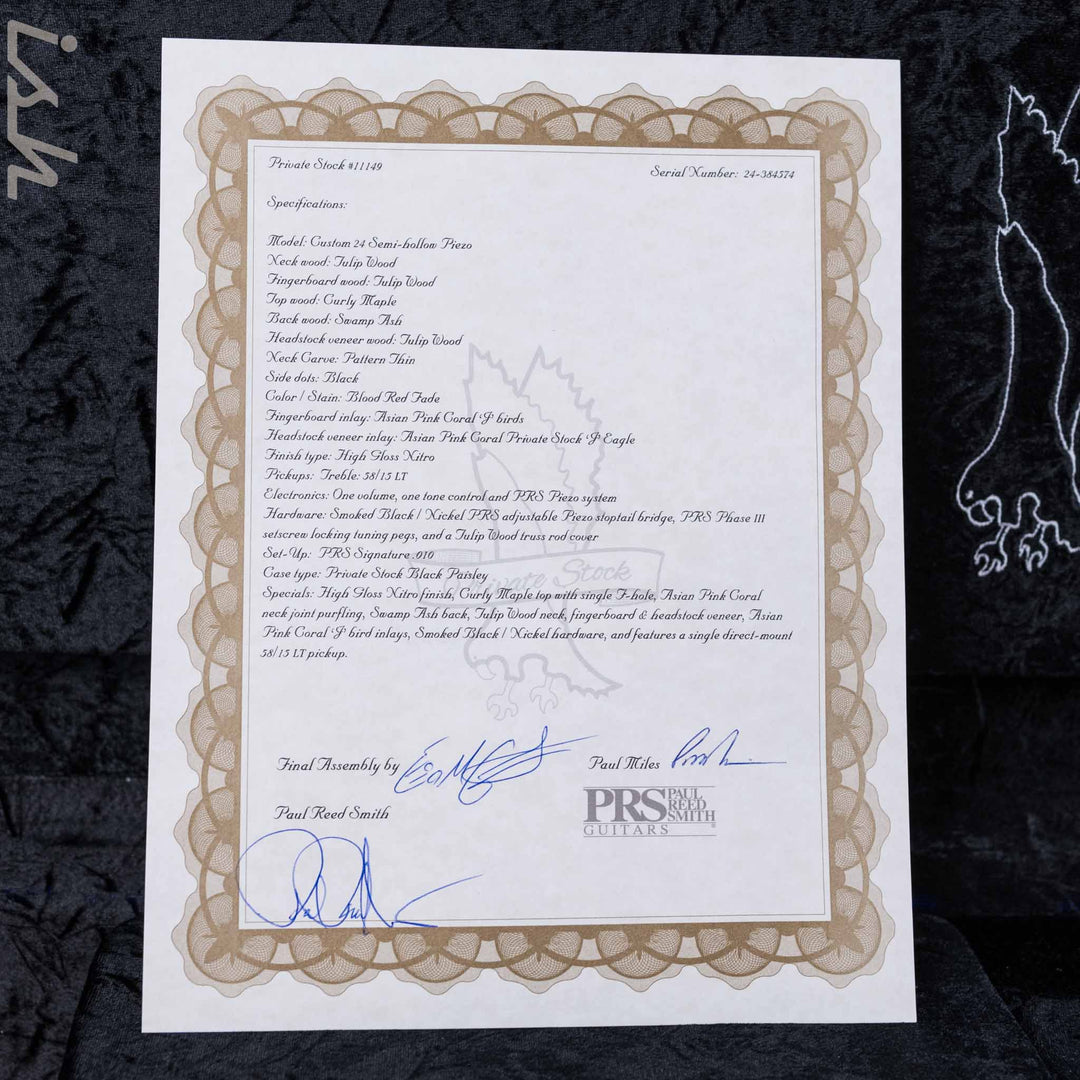 ish
Private Stock #11149
Serial Number: 24-384574
Specifications:
Model: Custom 24 Semi-hollow Piezo
Neck wood: Tulip Wood
Fingerboard wood: Tulip Wood
Top wood: Curly Maple
Back wood: Swamp Ash
Headstock veneer wood: Tulip Wood
Neck Carve: Pattern Thin
Side dots: Black
Color / Stain: Blood Red Fade
Fingerboard inlay: Asian Pink Coral 'J' birds
Headstock veneer inlay: Asian Pink Coral Private Stock 'J' Eagle
Finish type: High Gloss Nitro
Pickups: Treble: 58/15 LT
Electronics: One volume, one tone control and PRS Piezo system
Hardware: Smoked Black / Nickel PRS adjustable Piezo stoptail bridge, PRS Phase III
setscrew locking tuning pegs, and a Tulip Wood truss rod cover
Set-Up: PRS Signature .010
Case type: Private Stock Black Paisley
Private Stock
Specials: High Gloss Nitro finish, Curly Maple top with single F-hole, Asian Pink Coral
neck joint purfling, Swamp Ash back, Tulip Wood neck, fingerboard & headstock veneer, Asian
Pink Coral 'J' bird inlays, Smoked Black / Nickel hardware, and features a single direct-mount
58/15 LT pickup.
Final Assembly by
Paul Miles
Paul Reed Smith
PRS PAUL REED SMITH
GUITARS